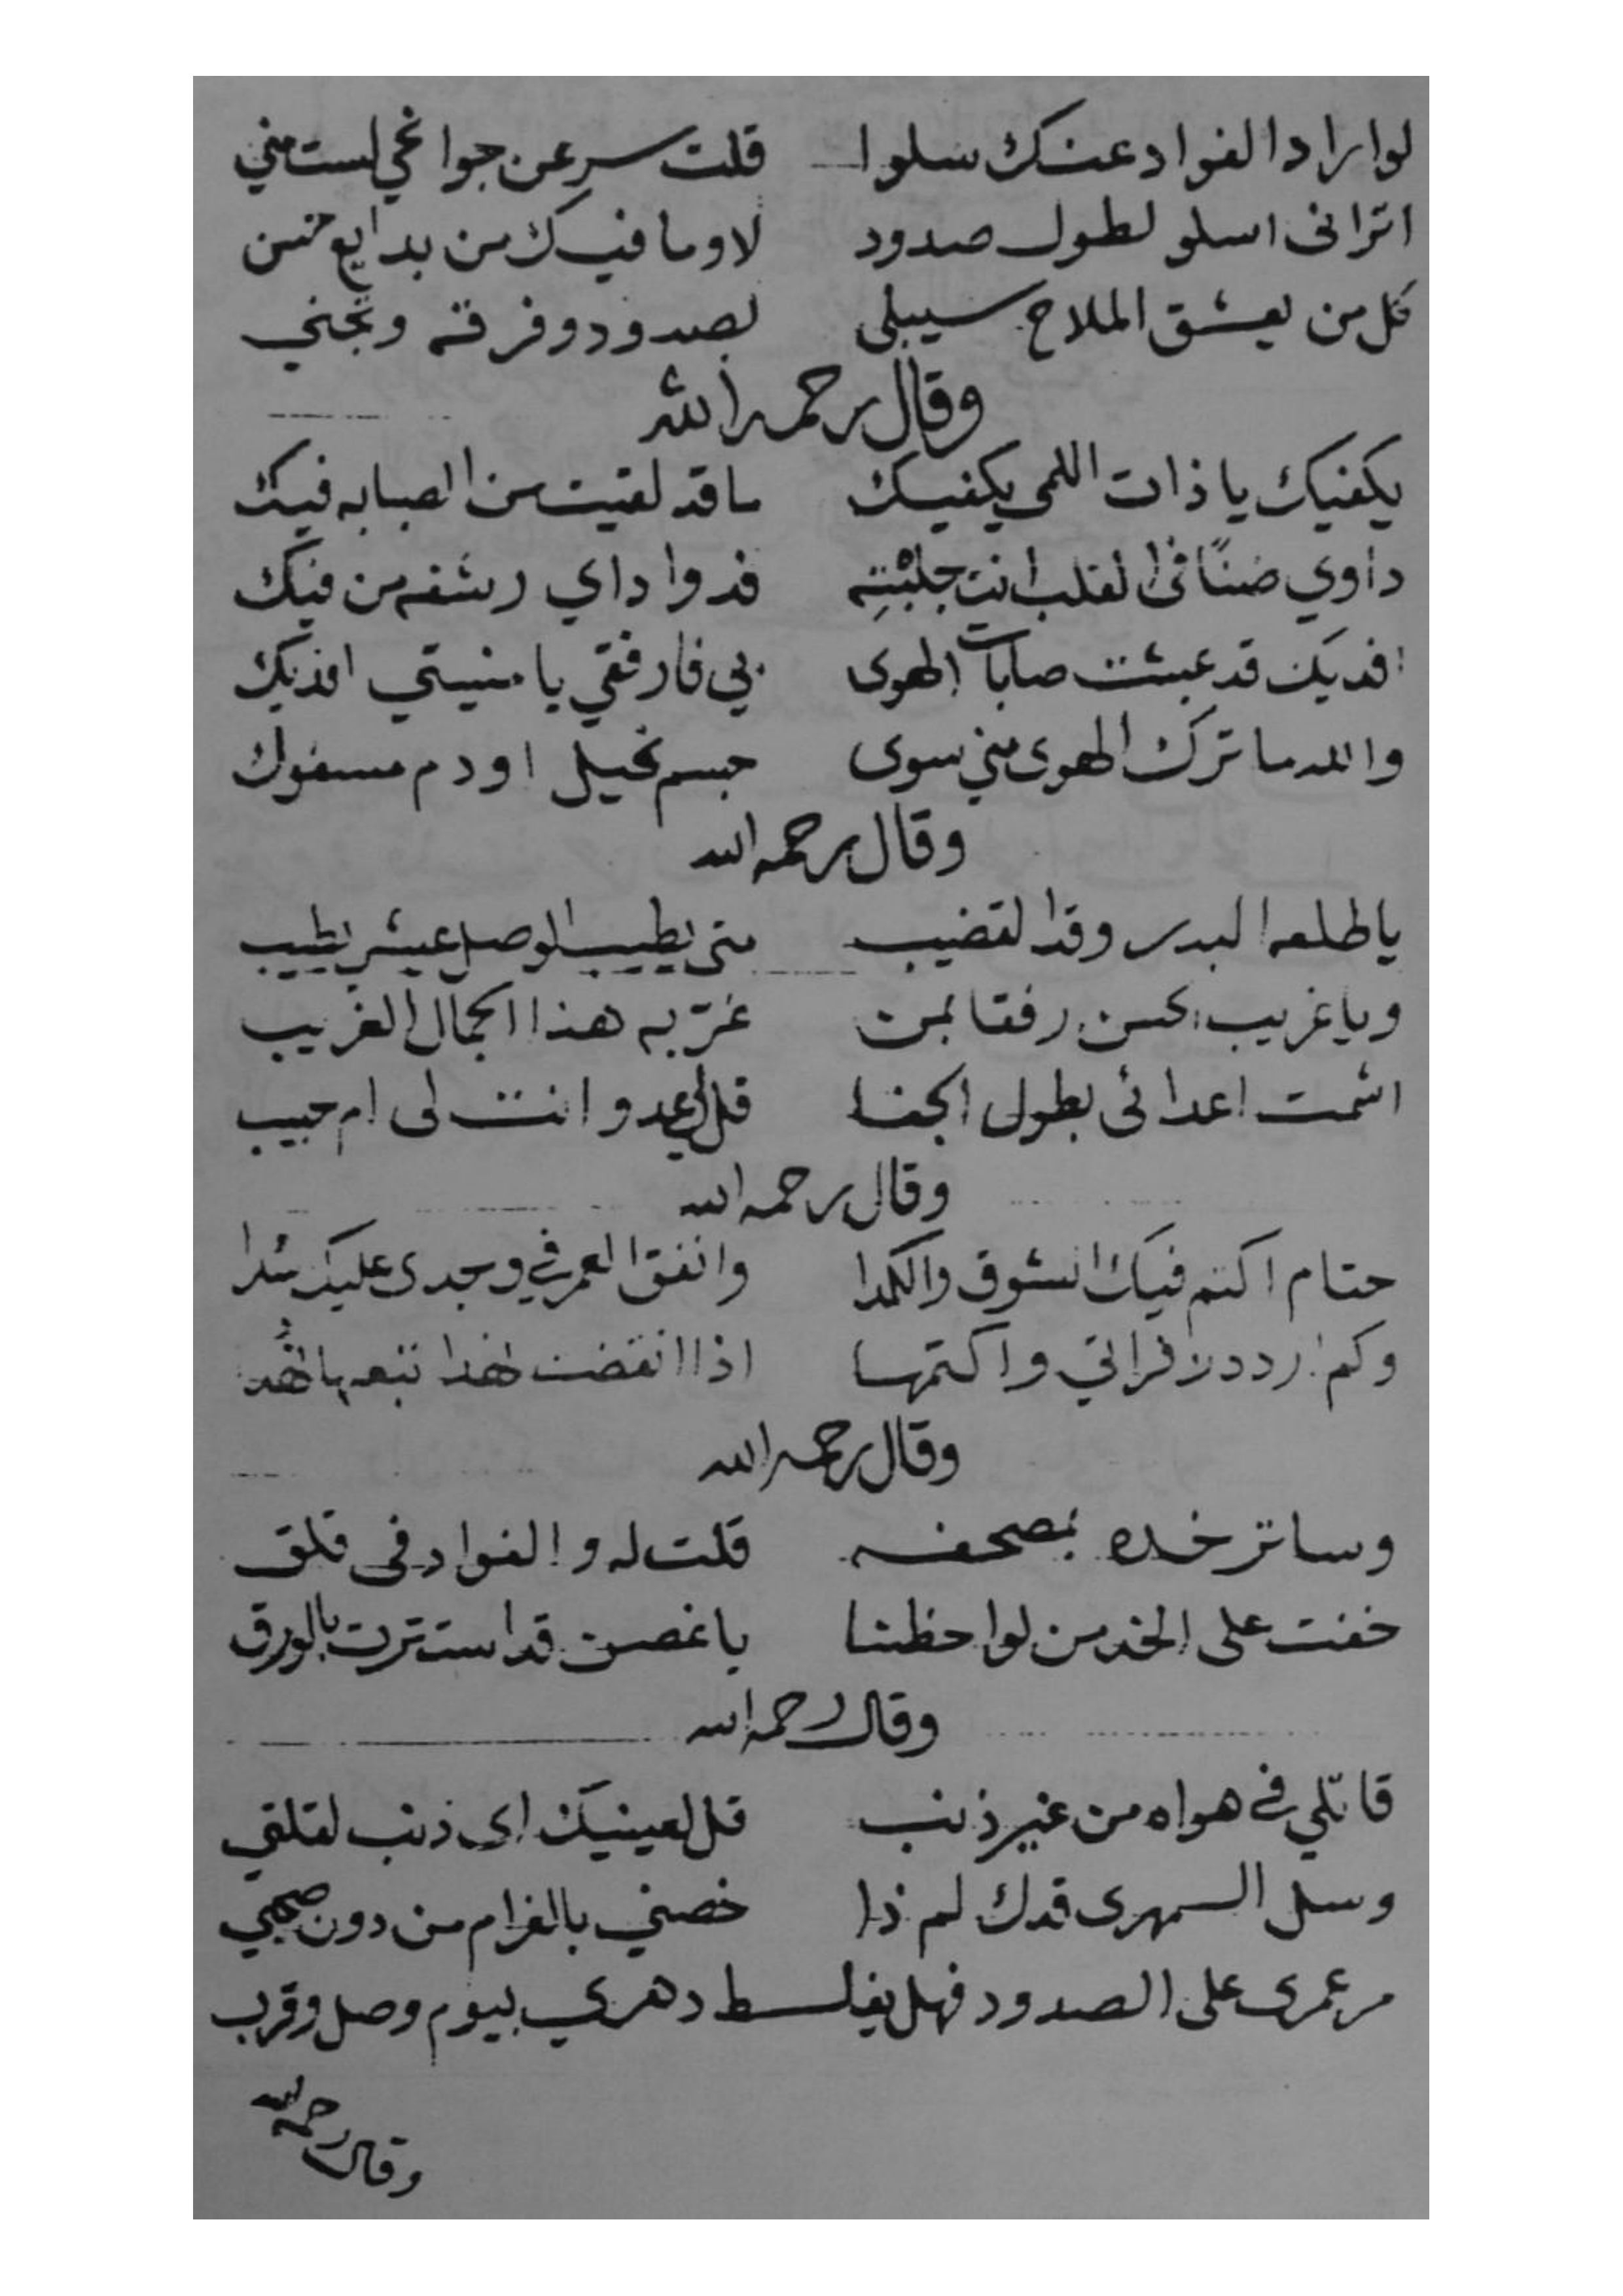 لو اراد الفواد عنك سلوا قلت سر عن جوانحي لست مني
اتراني اسلو لطول صدود لا وما فيك من بدايع حسن
كل من يعشق الملاح سيبلى بصدود وفرقة وتجني
وقال رحمه الله
يكفيك يا ذات اللمى يكفيك ما قد لقيت من الصبابه فيك
داوي ضنًا في القلب انتِ جلبْتِه فدوا داي رشفه من فيك
افديك قد عبثت صبابات الهوى بي فارفقي يا منيتي افديك
والله ما ترك الهوى مني سوى جسم نحيل او دم مسفوك
وقال رحمه الله
يا طلعه البدر وقد القضيب متى يطيب الوصل عيشي يطيب
ويا غريب الحسن رفقا بمن غرّ به هذا الجمال الغريب
اشمت اعدائى بطول الجفا قل لي عدو انت لى ام حبيب
وقال رحمه الله
حتام اكتم فيك الشوق والكمدا وانفق العمر في وجدى عليك سدا
وكم اردد زفراتي واكتمها اذا انقضت هذا تبعها
وقال رحمه الله
وساتر خده بمصحفه قلت له والفواد فى قلق
خفت على الخد من لواحظنا يا غصن قد استترت بالورق
وقال رحمه الله
قاتلي في هواه من غير ذنب قل لعينيك اى ذنب لقلبي
وسل السمهرى قدك لم ذا خصني بالغرام من دون صحبي
مر عمرى على الصدود فهل يغلط دهري بيوم وصل وقرب
وقال رحمه الله